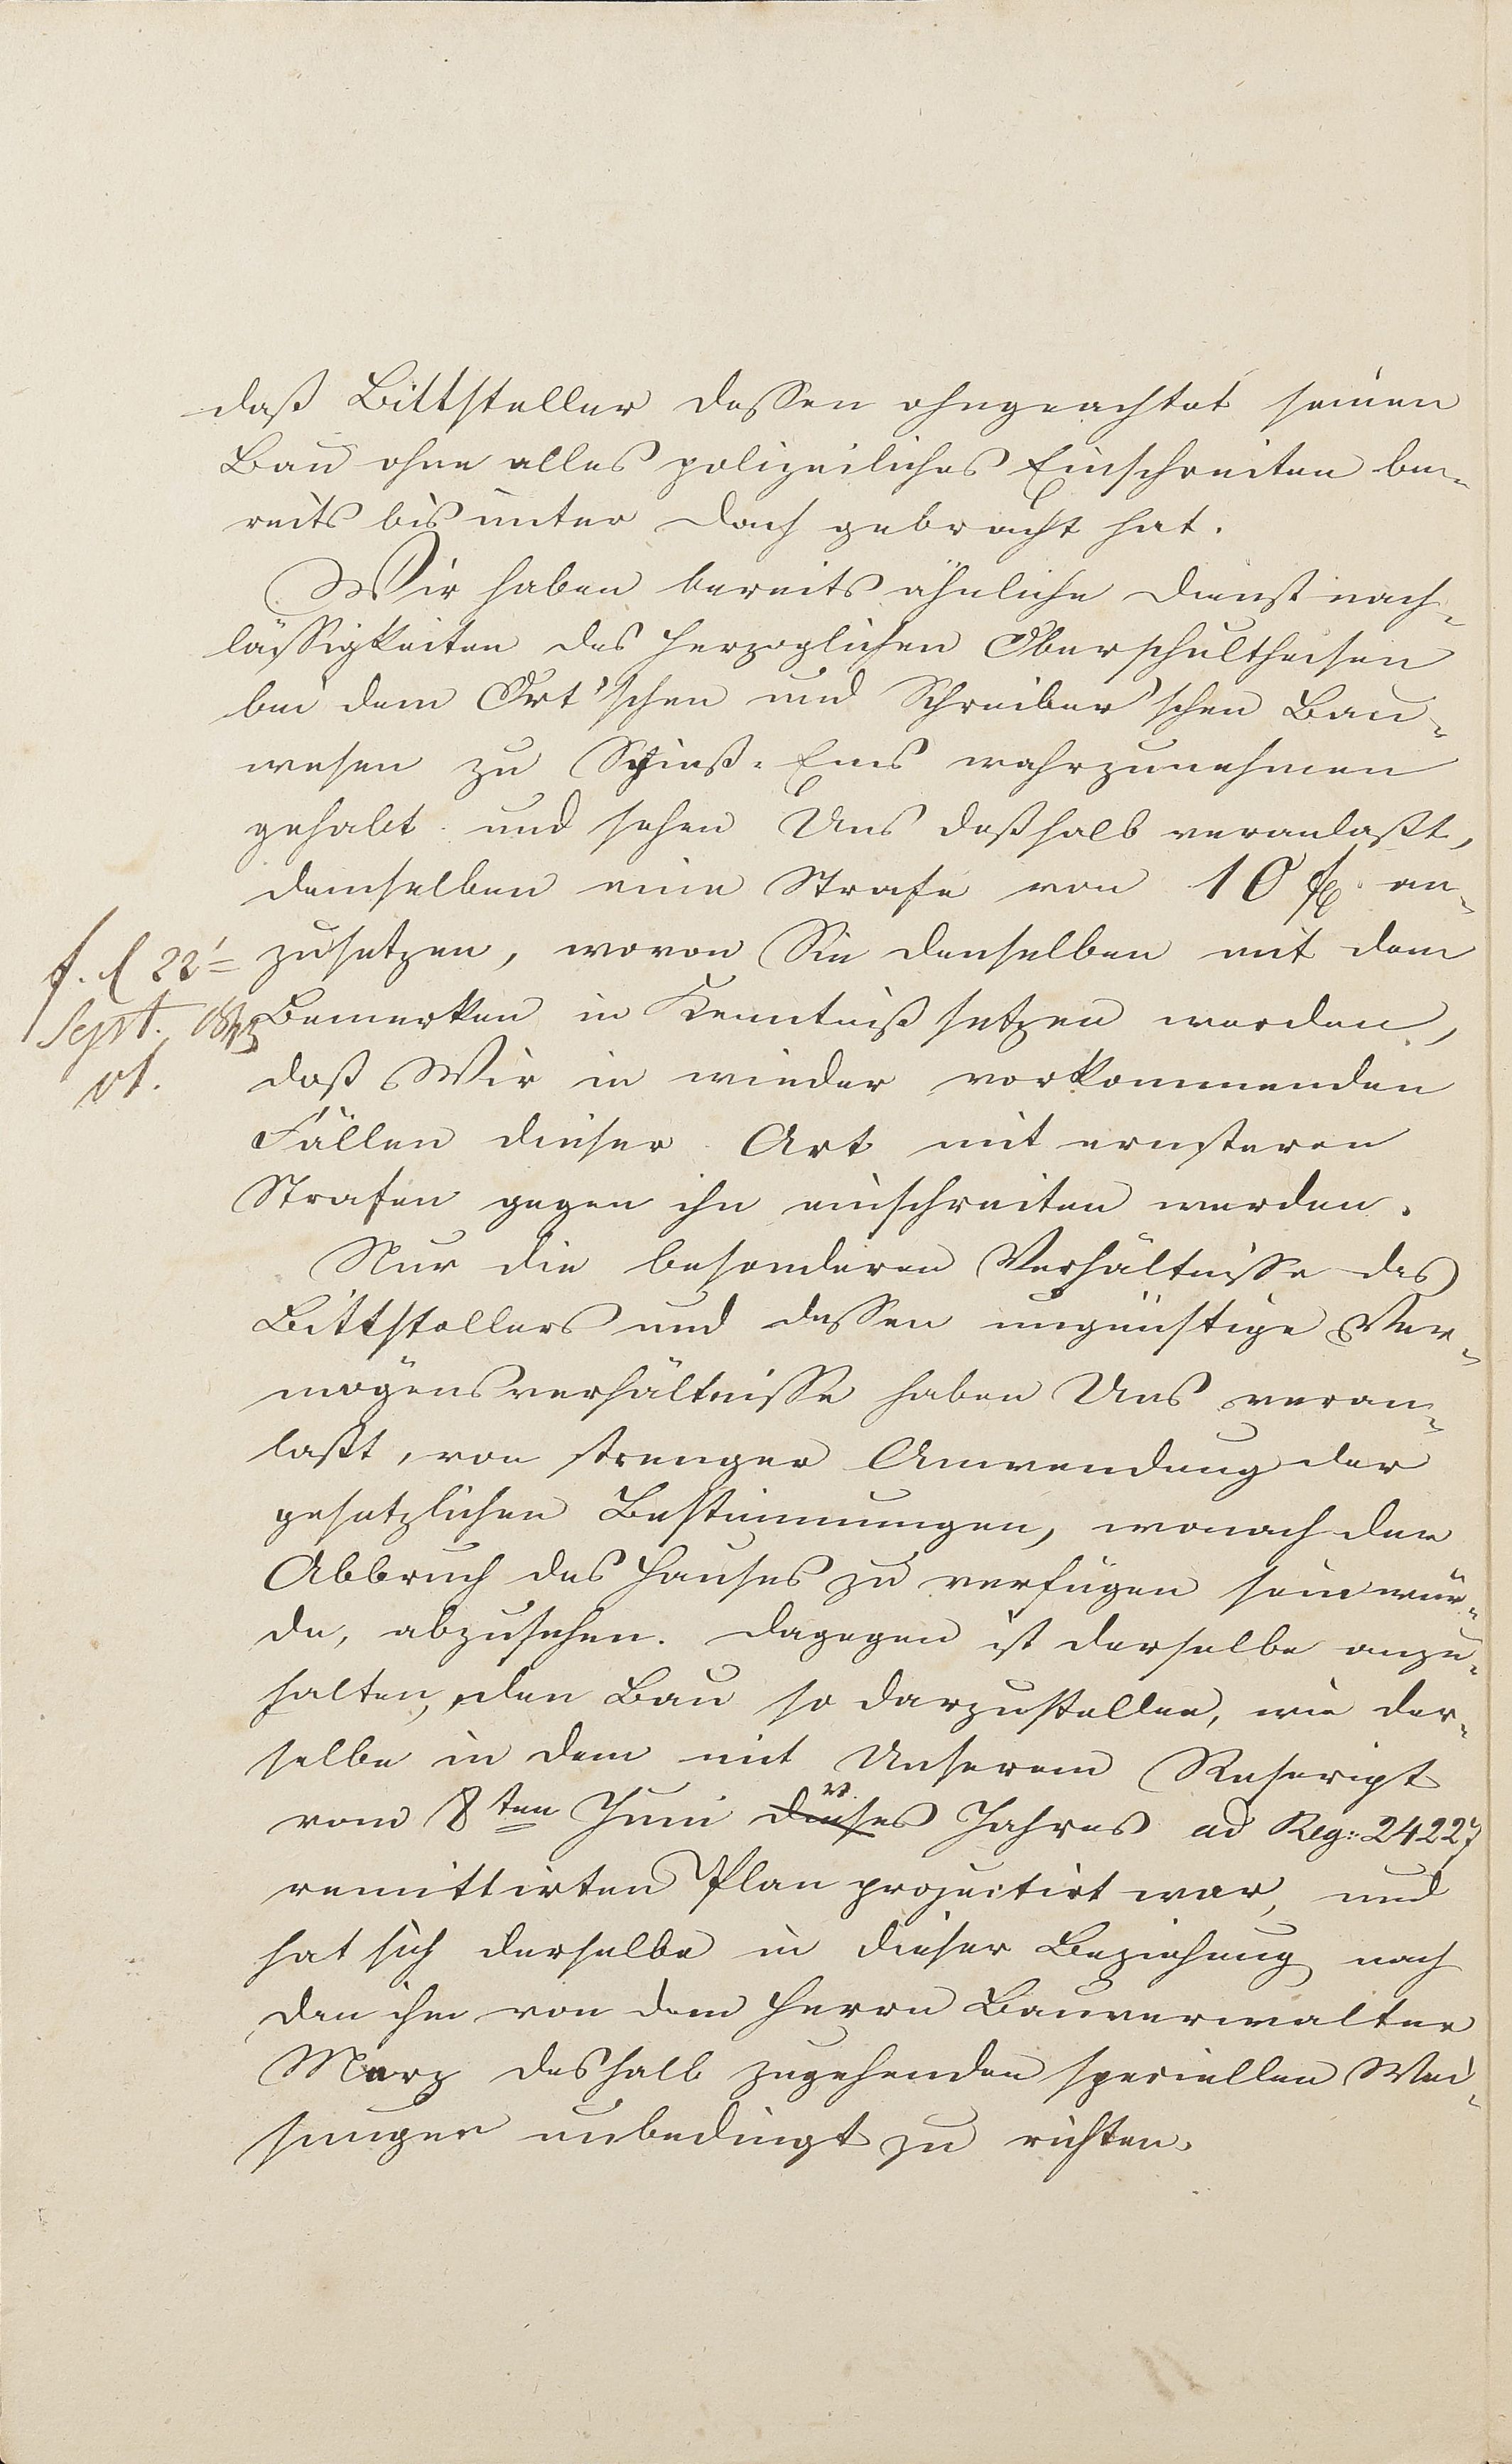 daß Bittsteller dessen ohngeachtet seinen
Bau ohne alles polizeiliches Einschreiten be-
reits bis unter Dach gebracht hat.
Wir haben bereits ähnliche Dienstnach-
lässigkeiten des Herzoglichen Oberschultheisen
bei dem Ort'schen und Schreiber'schen Bau-
wesen zu Spieß-Ems wahrzunehmen
gehabt und sehen Uns deßhalb veranlaßt,
demselben eine Strafe von 10 fl. an-
zusetzen, wovon Sie denselben mit dem
Bemerken in Kenntniß setzen werden,
daß Wir in wieder vorkommenden
Fällen dieser Art mit ernsteren
Strafen gegen ihn einschreiten werden.
f. d 22
Sept.
vt.
Nur die besonderen Verhältnisse des
Bittstellers und dessen ungünstige Ver-
mögensverhältnisse haben Uns veran-
laßt, von strenger Anwendung der
gesetzlichen Bestimmungen, wonach der
Abbruch des Hauses zu verfügen sein wür-
de, abzusehen. Dagegen ist derselbe anzu-
halten, den Bau so darzustellen, wie der-
selbe in dem mit Unserem Rescript
vom 8ten Juni dieses v. Jahres ad Reg: 24227
remittirten Plan projectirt war, und
hat sich derselbe in dieser Beziehung nach
den ihm von dem Herrn Bauverwalter
Marz deshalb zugehenden speciellen Wei-
sungen unbedingt zu richten.